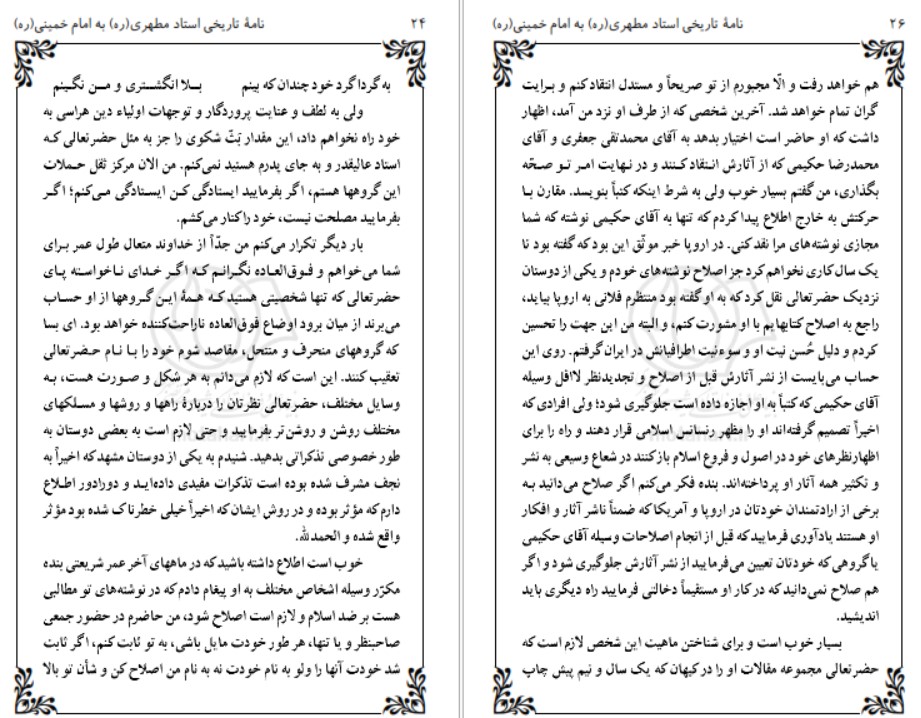 ۲۴ نامهٔ تاریخی استاد مطهری(ره) به امام خمینی(ره)
به گرداگرد خود چندان که بینم بـلا انگشـتری و مـن نگـینم
ولی به لطف و عنایت پروردگار و توجهات اولیاء دین هراسی به
خود راه نخواهم داد، این مقدار بَثّ شکوی را جز به مثل حضرتعالی که
استاد عالیقدر و به جای پدرم هستید نمی‌کنم. من الان مرکز ثقل حملات
این گروهها هستم، اگر بفرمایید ایستادگی کن ایستادگی می‌کنم؛ اگر
بفرمایید مصلحت نیست، خود را کنار می‌کشم.
بار دیگر تکرار می‌کنم من جدّاً از خداوند متعال طول عمر برای
شما می‌خواهم و فوق‌العاده نگرانم که اگر خدای ناخواسته پای
حضرتعالی که تنها شخصیتی هستید که همهٔ این گروهها از او حساب
می‌برند از میان برود اوضاع فوق‌العاده ناراحت‌کننده خواهد بود. ای بسا
که گروههای منحرف و منتحل، مقاصد شوم خود را با نام حضرتعالی
تعقیب کنند. این است که لازم می‌دانم به هر شکل و صورت هست، به
وسایل مختلف، حضرتعالی نظرتان را دربارهٔ راهها و روشها و مسلکهای
مختلف روشن و روشن‌تر بفرمایید و حتی لازم است به بعضی دوستان به
طور خصوصی تذکراتی بدهید. شنیدم به یکی از دوستان مشهد که اخیراً به
نجف مشرف شده بوده است تذکرات مفیدی داده‌اید و دورادور اطلاع
دارم که مؤثر بوده و در روش ایشان که اخیراً خیلی خطرناک شده بود مؤثر
واقع شده و الحمدلله.
خوب است اطلاع داشته باشید که در ماههای آخر عمر شریعتی بنده
مکرّر وسیله اشخاص مختلف به او پیغام دادم که در نوشته‌های تو مطالبی
هست بر ضد اسلام و لازم است اصلاح شود، من حاضرم در حضور جمعی
صاحبنظر و یا تنها، هر طور خودت مایل باشی، به تو ثابت کنم، اگر ثابت
شد خودت آنها را ولو به نام خودت نه به نام من اصلاح کن و شأن تو بالا
۲۶ نامهٔ تاریخی استاد مطهری(ره) به امام خمینی(ره)
هم خواهد رفت و الّا مجبورم از تو صریحاً و مستدل انتقاد کنم و برایت
گران تمام خواهد شد. آخرین شخصی که از طرف او نزد من آمد، اظهار
داشت که او حاضر است اختیار بدهد به آقای محمدتقی جعفری و آقای
محمدرضا حکیمی که از آثارش انتقاد کنند و در نهایت امر تو صحّه
بگذاری، من گفتم بسیار خوب ولی به شرط اینکه کتباً بنویسد. مقارن با
حرکتش به خارج اطلاع پیدا کردم که تنها به آقای حکیمی نوشته که شما
مجازی نوشته‌های مرا نقد کنی. در اروپا خبر موثّق این بود که گفته بود تا
یک سال کاری نخواهم کرد جز اصلاح نوشته‌های خودم و یکی از دوستان
نزدیک حضرتعالی نقل کرد که به او گفته بود منتظرم فلانی به اروپا بیاید،
راجع به اصلاح کتابهایم با او مشورت کنم، و البته من این جهت را تحسین
کردم و دلیل حُسن نیت او و سوءنیت اطرافیانش در ایران گرفتم. روی این
حساب می‌بایست از نشر آثارش قبل از اصلاح و تجدیدنظر لااقل وسیله
آقای حکیمی که کتباً به او اجازه داده است جلوگیری شود؛ ولی افرادی که
اخیراً تصمیم گرفته‌اند او را مظهر رنسانس اسلامی قرار دهند و راه را برای
اظهارنظرهای خود در اصول و فروع اسلام باز کنند در شعاع وسیعی به نشر
و تکثیر همه آثار او پرداخته‌اند. بنده فکر می‌کنم اگر صلاح می‌دانید به
برخی از ارادتمندان خودتان در اروپا و آمریکا که ضمناً ناشر آثار و افکار
او هستند یادآوری فرمایید که قبل از انجام اصلاحات وسیله آقای حکیمی
یا گروهی که خودتان تعیین می‌فرمایید از نشر آثارش جلوگیری شود و اگر
هم صلاح نمی‌دانید که در کار او مستقیماً دخالتی فرمایید راه دیگری باید
اندیشید.
بسیار خوب است و برای شناختن ماهیت این شخص لازم است که
حضرتعالی مجموعه مقالات او را در کیهان که یک سال و نیم پیش چاپ